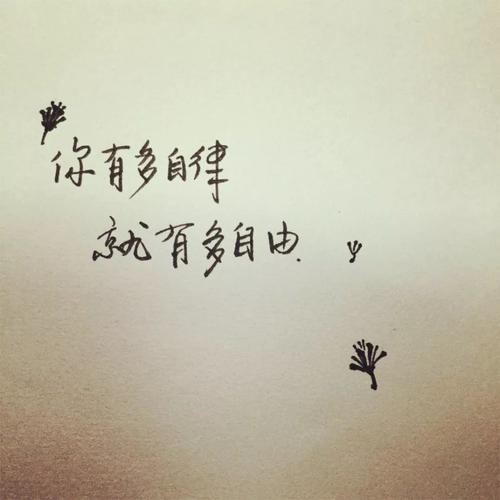 你有多自律
就有多自由.